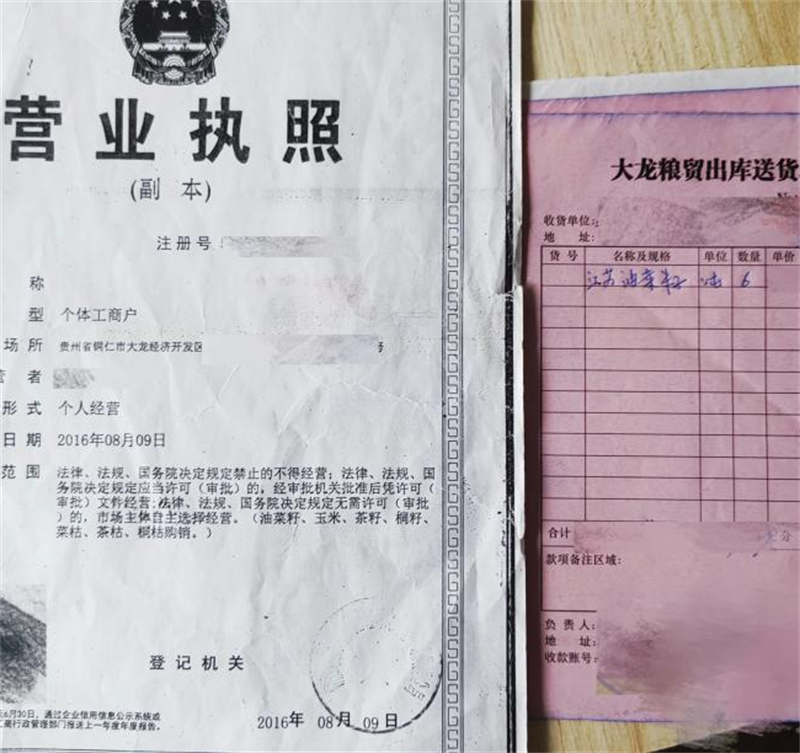 营业执照
(副 本)
注册号
称
型 个体工商户
场所 贵州省铜仁市大龙经济开发区 号
者
形式 个人经营
日期 2016年08月09日
范围 法律、法规、国务院决定规定禁止的不得经营；法律、法规、国
务院决定规定应当许可（审批）的，经审批机关批准后凭许可（
审批）文件经营;法律、法规、国务院决定规定无需许可（审批
）的，市场主体自主选择经营。（油菜籽、玉米、茶籽、桐籽、
菜枯、茶枯、桐枯购销。）
登记机关
2016年 08月 09日
6月30日，通过企业信用信息公示系统或
工商行政管理部门报送上一年度年度报告。
大龙粮贸出库送货
收货单位:
地 址:
货号 名称及规格 单位 数量 单价
江苏油菜籽 吨 6
合计 分
款项备注区域:
负责人:
地 址:
收款账号: